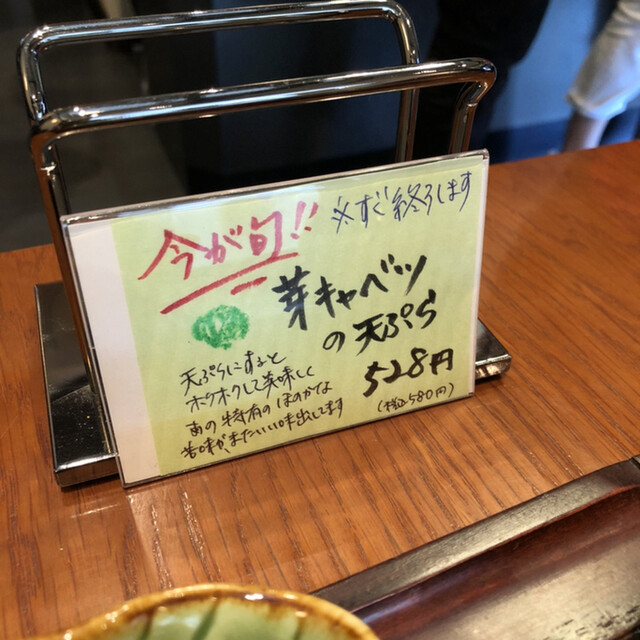 今が旬!!
※すぐ終ろします
芽キャベツ
の天ぷら
528円
(税込580円)
天ぷらにすると
ホクホクして美味しく
苦味がまたいい味出してます